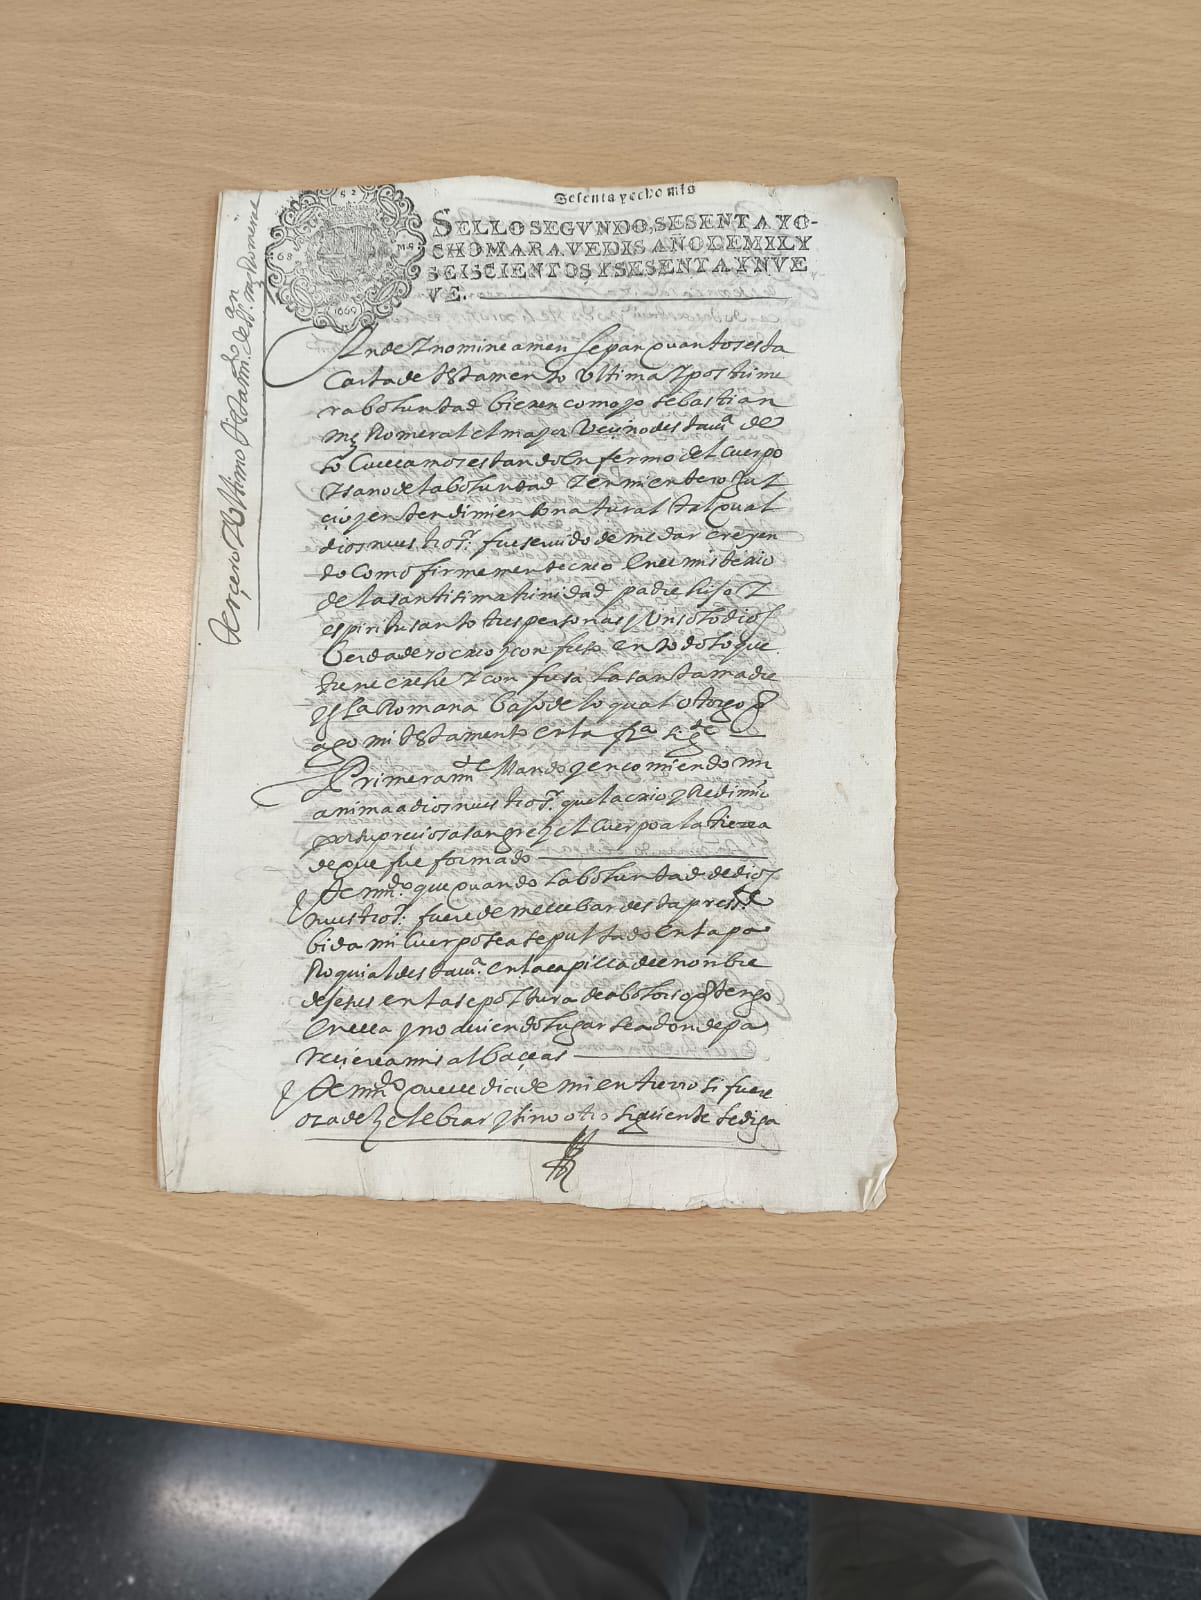 Sesenta y ocho mrs
SELLO SEGVNDO, SESENTA Y O-
CHO MARAVEDIS, AÑO DE MIL Y
SEISCIENTOS, Y SESENTA Y NVE
VE.
1669
Terçero Ultimo
Yn dey nomine amen sepan quantos esta
Carta de testamento ultima y postrime
ra boluntad bieren como yo sebastian
mz Romeral el mayor veçino desta vª de
estando enfermo del cuerpo
y sano de la boluntad y en mi entero Juy
çio y entendimiento natural tal qual
dios nuestro sr. fue seruido de me dar creyen
do como firmemente creo en el misterio
de la santisima trinidad padre hijo y
espiritu santo tres personas y un solo dios
berdadero creo y confieso en todo lo que
tiene crehe y confiesa la santa madre
yglª Romana bajo de lo qual otorgo q
ago mi testamento en la fª sigte
Primeramte Mando y encomiendo mi
anima a dios nuestro sr. que la crio y Redimio
por su preçiosa sangre y el cuerpo a la tierra
de que fue formado
Ite mdo que quando la boluntad de dios
nuestro sr. fuere de me llebar desta presste
bida mi cuerpo sea sepultado en la pa
Roquial desta vª. en la capilla del nombre
de jesus en la sepoltura de abolorio q tengo
en ella y no auiendo lugar sea donde pa
reçiere a mis albaçeas
Ite mdo que el dia de mi entierro si fuere
ora de çelebrar y sino otro siguiente se diga